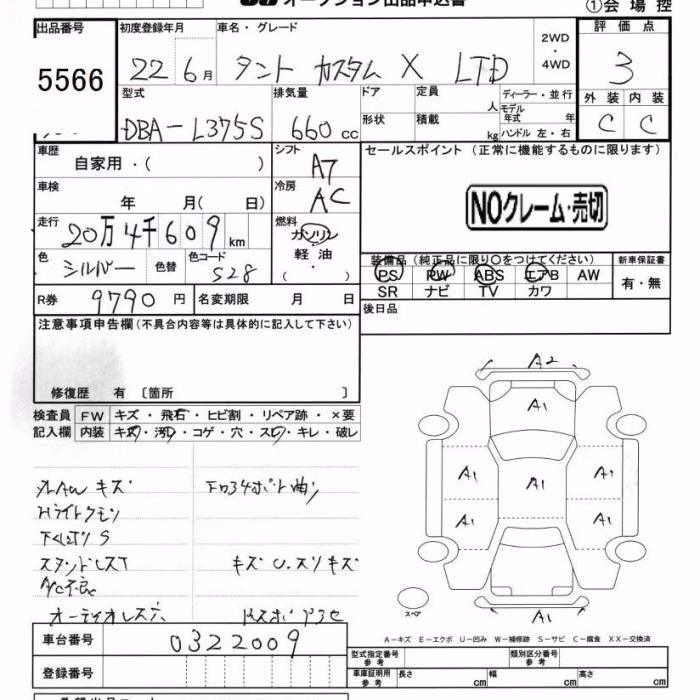 オークション出品申込書
①会場控
出品番号 初度登録年月 車名・グレード 2WD・4WD 評価点
5566 22 6月 タント カスタム X LTD 3
外装 内装
C C
型式 排気量 ドア 形状 定員 人 積載 kg ディーラー・並行 モデル年式 年 ハンドル 左・右
DBA-L375S 660cc
車歴 自家用・( ) シフト A7
セールスポイント(正常に機能するものに限ります)
車検 年 月(日) 冷房 AC
NOクレーム・売切
走行 20万4千609km 燃料 ガソリン 軽油 ・( )
色 シルバー 色替 色コード S28
装備品(純正品に限り○をつけてください) 新車保証書
PS PW ABS エアB AW 有・無
SR ナビ TV カワ
R券 9790円 名変期限 月 日
後日品
注意事項申告欄(不具合内容等は具体的に記入して下さい)
修復歴 有 〔箇所 〕
検査員 FW キズ・飛石・ヒビ割・リペア跡・×要
記入欄 内装 キズ・汚レ・コゲ・穴・スレ・キレ・破レ
A2
A1
A1
A1 A1 A1
A1 A1
A1
キズ
Hライトクモリ
S
A/C不良
キズ U.スリキズ
スペア
A-キズ E-エクボ U-凹み W-補修跡 S-サビ C-腐食 XX-交換済
車台番号 0322009
型式指定番号 参考 類別区分番号 参考
登録番号
車庫証明用 参考 長さ cm 幅 cm 高さ cm